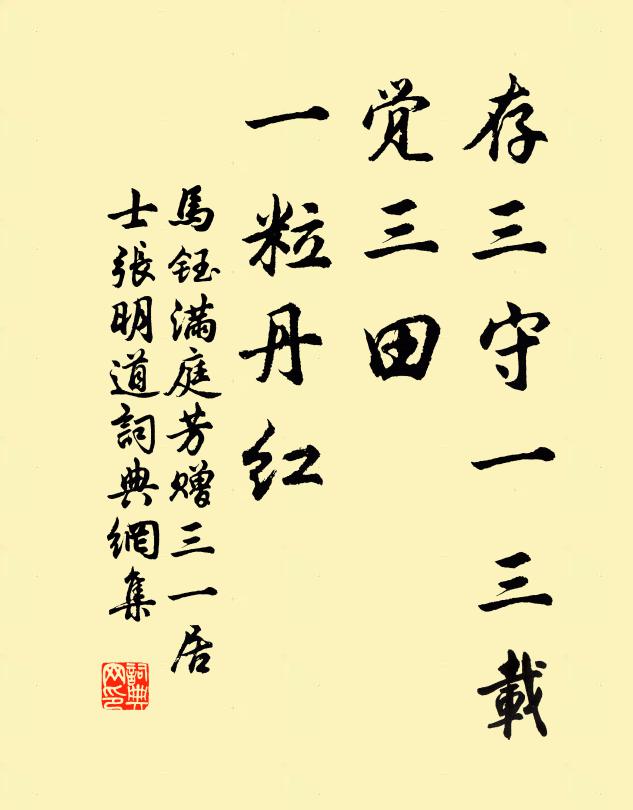 存三守一三載
覚三田
一粒丹红
馬鈺满庭芳赠三一居
士張明道詞典網集
詞典網印